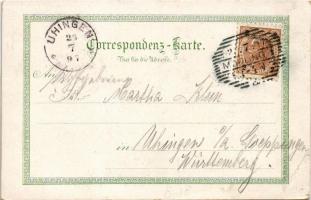 UHINGEN
23
7
97
Correspondenz-Karte.
Nur für die Adresse.
Martha Klein
in Uhingen o/a Goeppingen
Württemberg.